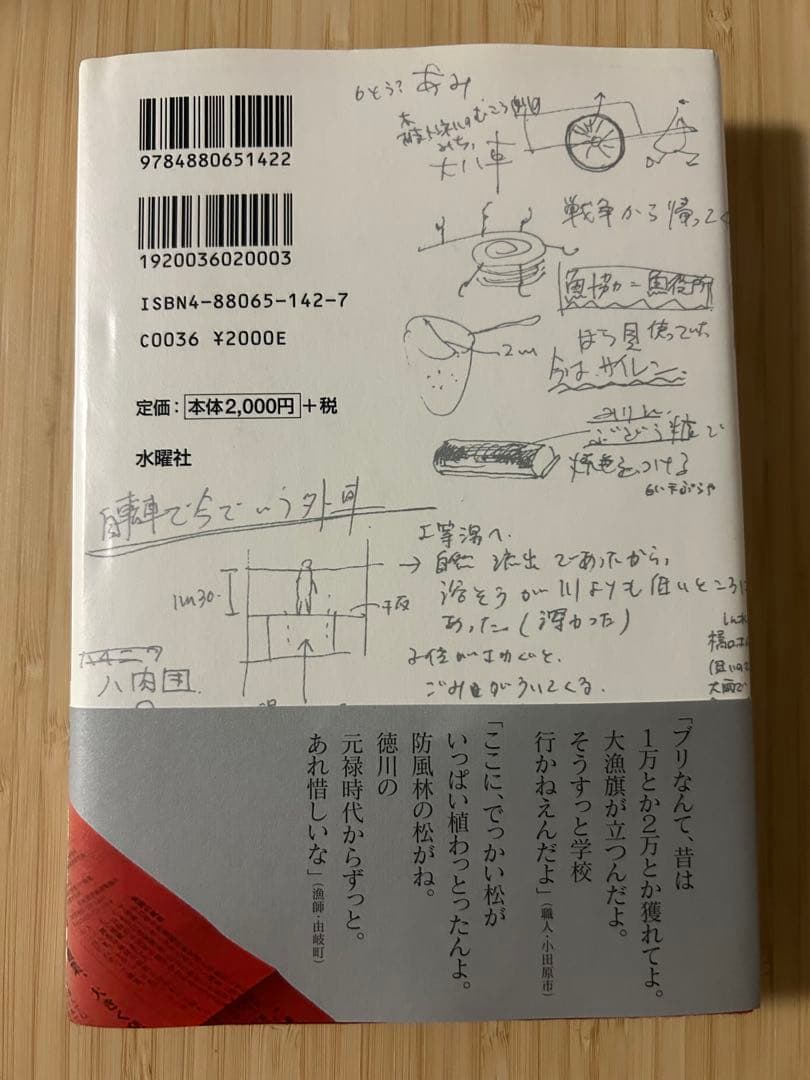 9784880651422
1920036020003
ISBN4-88065-142-7
C0036 ¥2000E
定価：本体2,000円＋税
水曜社
あみ
大八車
戦争から帰って
魚協カ＝魚役所
ほら貝使っていた
今はサイレン
2m
みりん
ぶどう糖で
焼色をつける
自転車で今でいう外車
1m30.
工事湯へ.
自然流出であったから,
浴そうが川よりも低いところに
あった.(深かった)
ごみ
八肉国.
「ブリなんて、昔は
1万とか2万とか獲れてよ。
大漁旗が立つんだよ。
そうすっと学校
行かねえんだよ」（職人・小田原市）
「ここに、でっかい松が
いっぱい植わっとったんよ。
防風林の松がね。
徳川の
元禄時代からずっと。
あれ惜しいな」（漁師・由岐町）